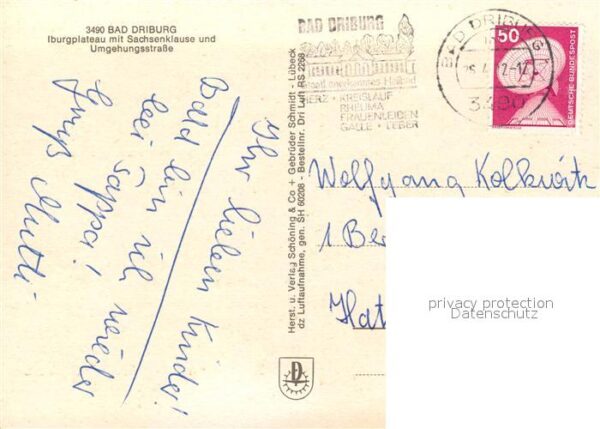 3490 BAD DRIBURG
Iburgplateau mit Sachsenklause und
Umgehungsstraße
Ihr lieben Kinder!
Bald bin ich wieder
bei Pappa!
Gruß Mutti
Herst. u. Verlag Schöning & Co + Gebrüder Schmidt - Lübeck
dz Luftaufnahme, gen. SH 60208 - Bestellnr. Dri Luft RS 2268
BAD DRIBURG
Staatl. anerkanntes Heilbad
HERZ · KREISLAUF
RHEUMA
FRAUENLEIDEN
GALLE · LEBER
BAD DRIBURG
3490
50
DEUTSCHE BUNDESPOST
Wolfgang Kolkwitz
1 Ber
Hat
privacy protection
Datenschutz